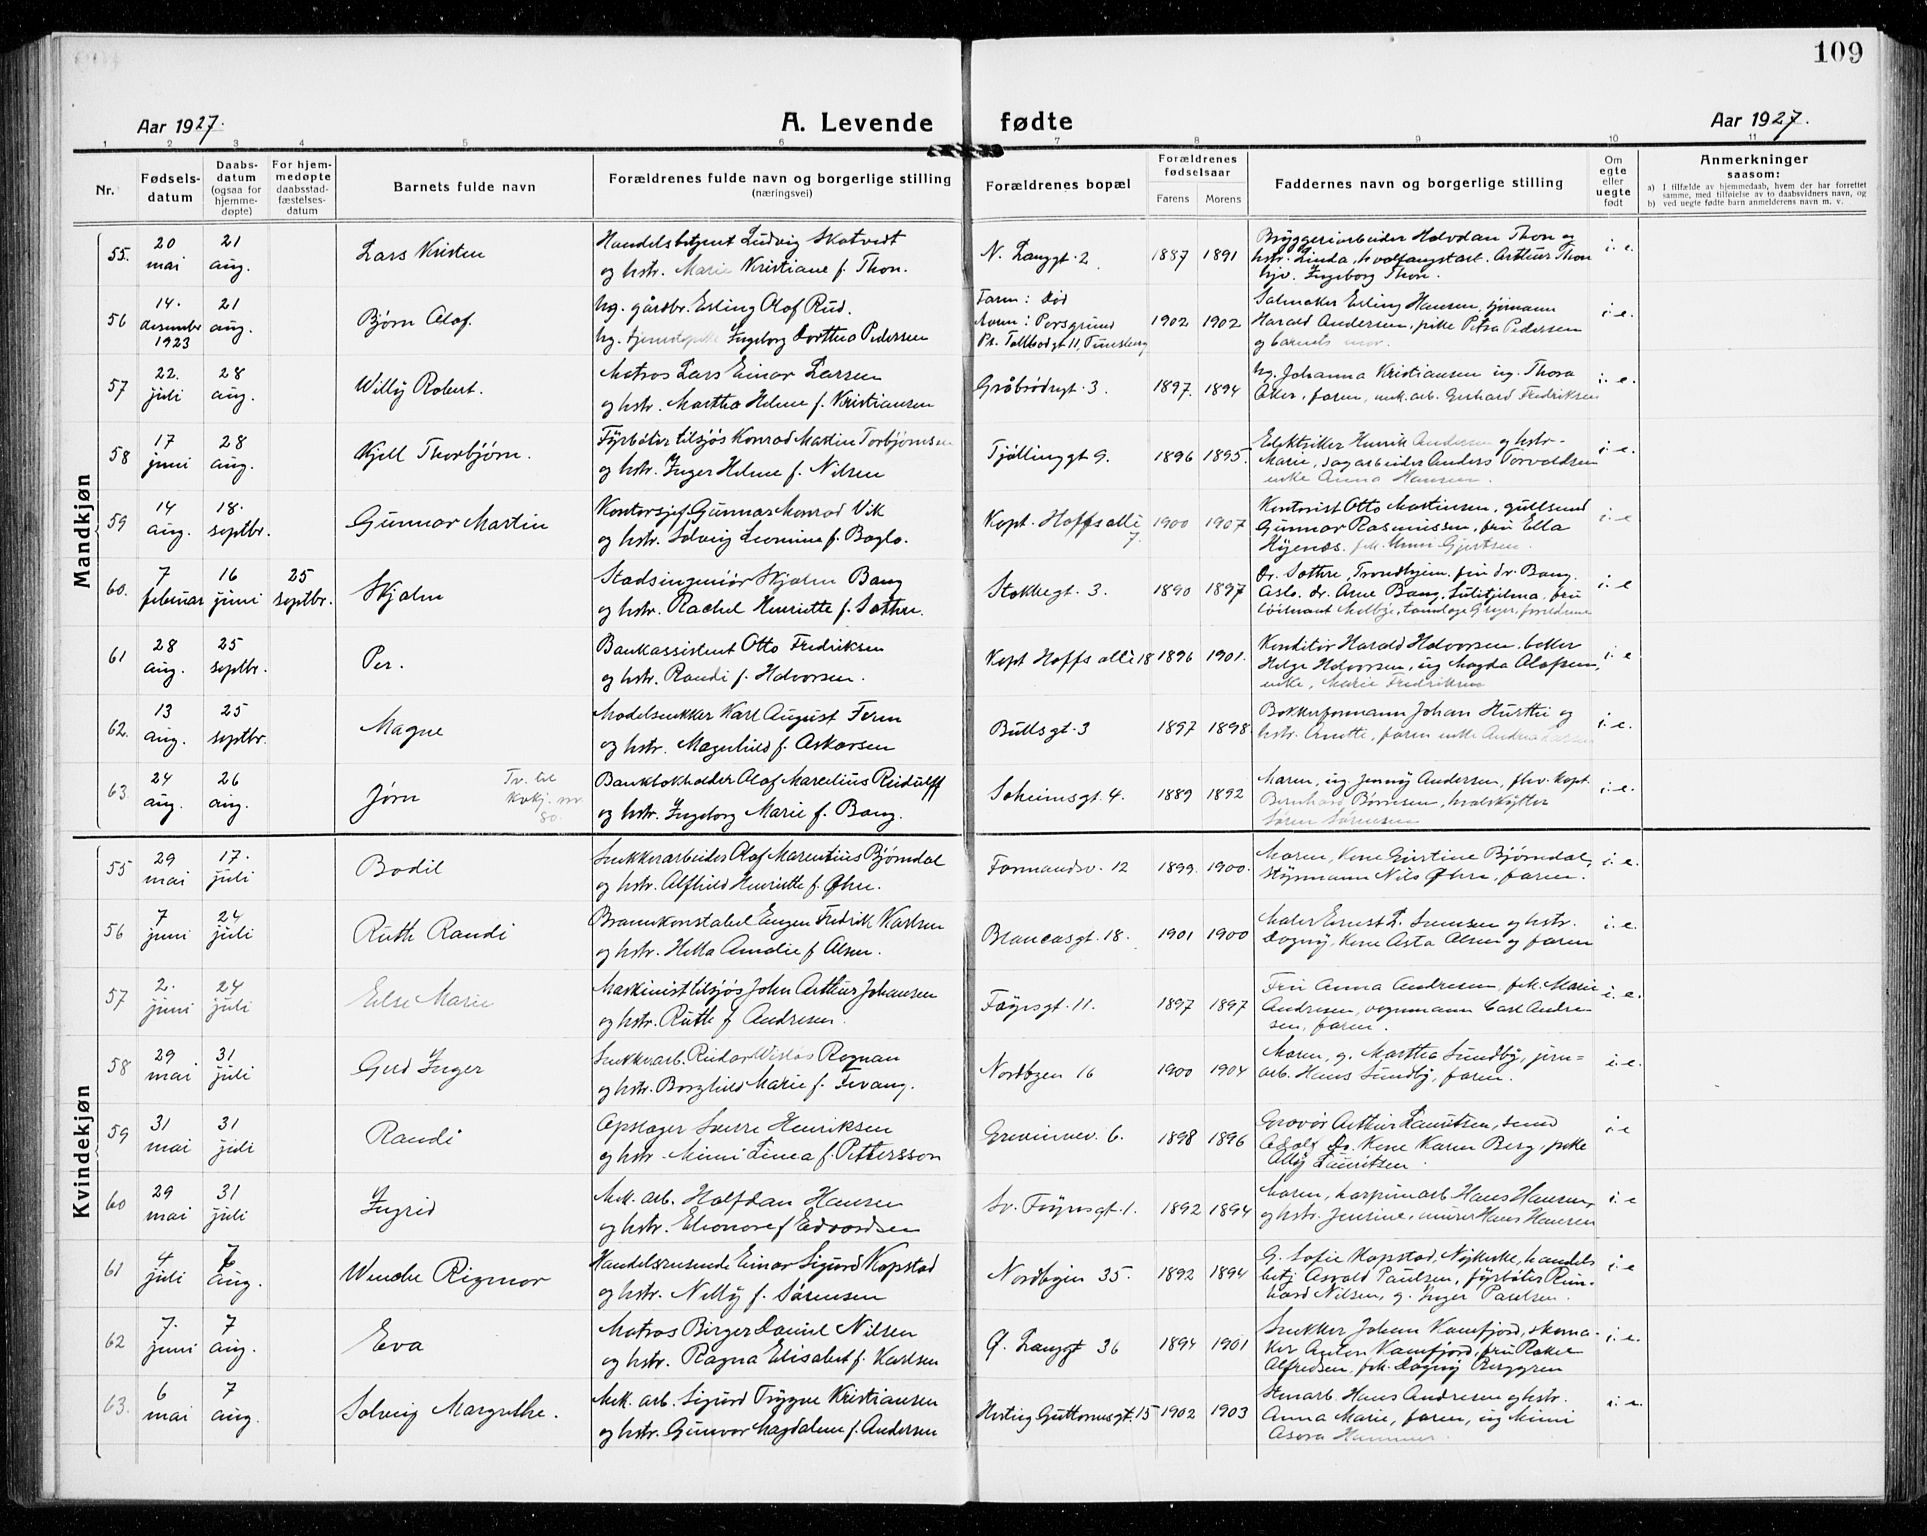 109
Aar 1927.
A. Levende fødte
Aar 1927.
1 2 3 4 5 6 7 8 9 10 11
Nr.
Fødsels-
datum
Daabs-
datum
(ogsaa for
hjemme-
døpte)
For hjem-
medøpte
daabsstad-
fæstelses-
datum
Barnets fulde navn
Forældrenes fulde navn og borgerlige stilling
(næringsvei)
Forældrenes bopæl
Forældrenes
fødselsaar
Farens Morens
Faddernes navn og borgerlige stilling
Om
egte
eller
uegte
født
Anmerkninger
saasom:
a) I tilfælde av hjemmedaab, hvem der har forrettet
samme, med tilføielse av to daabsvidners navn, og
b) ved uegte fødte barn anmelderens navn m. v.
Mandkjøn
55. 20 mai 21 aug. Lars Kristen
Handelsbetjent Ludvig Skatvedt
og hstr. Marie Kristiane f. Thon.
N. Langgt. 2 1887 1891
Bryggeriarbeider Halvdan Thon og
hstr. Linda, hvalfangstarb. Arthur Thon
hjv. Ingeborg Thon.
i. e.
56 14. desember 1923 21 aug. Bjørn Olof.
Ug. gårdbr. Erling Olof Rud.
Ug. tjenestepike Ingeborg Dorthea Pedersen
Faren: død
Moren: Porsgrund
Pr. Tollbodgt 11, Tønsberg
1902 1902
Salmaker Erling Hansen, sjømann
Harald Andersen, pike Petra Pedersen
og barnets mor.
i. e.
57 22. juli 28 aug. Willy Robert.
Matros Lars Einar Larsen
og hstr. Martha Helene f. Kristiansen
Gråbrødregt. 3. 1897. 1894
Ug. Johanna Kristiansen, ug. Thora
Aker, faren, mek. arb. Gerhard Fredriksen
i. e.
58 17 juni 28 aug. Kjell Thorbjørn.
Fyrbøter tilsjøs Konrad Martin Torbjørnsen
og hstr. Inger Helene f. Nilsen
Tjøllinggt 9. 1896 1895.
Elektriker Henrik Andersen og hstr.
Marie, sagarbeider Anders Torvaldsen
enke Anna Hansen.
i. e.
59 14 aug. 18. septbr. Gunnar Martin
Kontorsjef Gunnar Monrad Vik
og hstr. Solveig Leonine f. Boglo.
Kapt. Hoffs allé 7. 1900 1907
Kontorist Otto Martinsen, gullsmed
Gunnar Rasmussen, fru Ella
Hyenæs, frk. Unni Gjertsen.
i. e
60. 7 februar 16 juni 25 septbr. Skjalm
Stadsingeniør Skjalm Bang
og hstr. Rachel Henriette f. Sæthre.
Stokkegt. 3. 1890 1897
Dr. Sæthre, Trondhjem, fru dr. Bang,
Oslo, dr. Arne Bang, Sulitjelma, fru
løitnant Melbye, tannlæge Geyer, foreldrene
i. e
61 28 aug. 25 septbr. Per.
Bankassistent Otto Fredriksen
og hstr. Randi f. Halvorsen.
Kapt Hoffs allé 18 1896 1901.
Konditor Harald Halvorsen, baker
Helge Halvorsen, ug Magda Olafsen,
enke, Marie Fredriksen
i. e
62. 13 aug. 25 septbr. Magne
Modelsnekker Karl August Ferm
og hstr. Magnhild f. Askarsen
Bullsgt. 3 1897 1898.
Bøkkerformann Johan Hurthi og
hstr. Anette, faren enke Andrea Larsen
i. e.
63. 24 aug. 26 aug. Jørn
Banklokholder Olaf Marcelius Ridulff
og hstr. Ingeborg Marie f. Bang.
Solheimsgt. 4. 1889 1892
Moren, ug Jenny Andersen, fhv. kapt.
Bernhard Børresen, hvalskytter
Søren Sørensen
i. e.
Kvindekjøn
55 29 mai 17. juli Bodil
Snekkerarbeider Olaf Marentius Bjørndal
og hstr. Alfhild Henriette f. Øhre.
Formandsv. 12 1899. 1900.
Moren, Kone Gustine Bjørndal,
styrmann Nils Øhre, faren.
i. e.
56 7 juni 24 juli Ruth Randi
Brannkonstabel Eugen Fredrik Karlsen
og hstr. Hella Amalie f. Olsen.
Brancasgt. 18. 1901 1900
Maler Ernest L. Svensen og hstr.
Dagny, Kone Asta Olsen og faren
i. e.
57 2. juni 24 juli Else Marie
Maskinist tilsjøs John Arthur Johansen
og hstr. Ruth f. Andresen.
Føynsgt. 11. 1897 1897
Fru Anna Andresen, frk. Marie
Andresen, vognmann Carl Andre-
sen, faren.
i. e.
58 29 mai 31 juli Gerd Inger
Snekkerarb. Reidar Rognan
og hstr. Borghild Marie f. Tevang.
Nordbyen 16 1900 1904
Moren, g. Martha Sundby, jern=
arb. Hans Sundby, faren.
i. e.
59 31 mai 31 juli Randi
Opslager Sverre Henriksen
og hstr. Mimi Linea f. Pettersson
Grevinnev. 6. 1898 1896
Gravør Arthur Lauritsen, smed
Adolf Ds. Kone Karen Berg, pike
Ally Lauritsen.
i e
60 29 mai 31 juli Ingrid
Mek. arb. Halfdan Hansen
og hstr. Elionore f Edvardsen
Sv. Føynsgt. 1. 1892 1894
Moren, harpunarb Hans Hansen,
og hstr. Jensine, murer Hans Hansen
i. e
61 4 juli 7 aug. Wenche Rigmor
Handelsreisende Einar Sigurd Kopstad
og hstr. Nelly f. Sørensen
Nordbyen 35. 1892 1894
G. Sofie Kopstad, Nykirke, handels
betj Asvald Paulsen, fyrbøter Rein-
hard Nilsen, g. Inger Paulsen.
i. e
62 7. juni 7 aug. Eva
Matros Birger Daniel Nilsen
og hstr. Ragna Elisabet f. Karlsen
Ø. Langgt 36 1894 1901
Snekker Johan Kamfjord, skoma-
ker Anton Kamfjord, fru Rakel
Alfredsen, frk. Dagny Berggren
i. e.
63. 6 mai 7 aug. Solveig Margrethe.
Mek. arb. Sigurd Trygve Kristiansen
og hstr. Gunvor Magdalene f. Andersen
Hertug Guttormsgt. 15 1902 1903
Stenarb. Hans Andresen og hstr.
Anna Marie, faren, ug Mimi
Asora Hammer.
i. e.